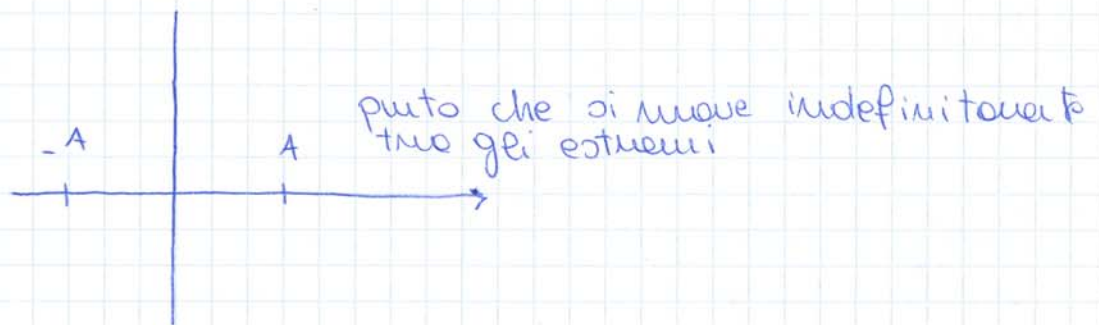 punto che si muove indefinitamente
tra gli estremi
-A
A